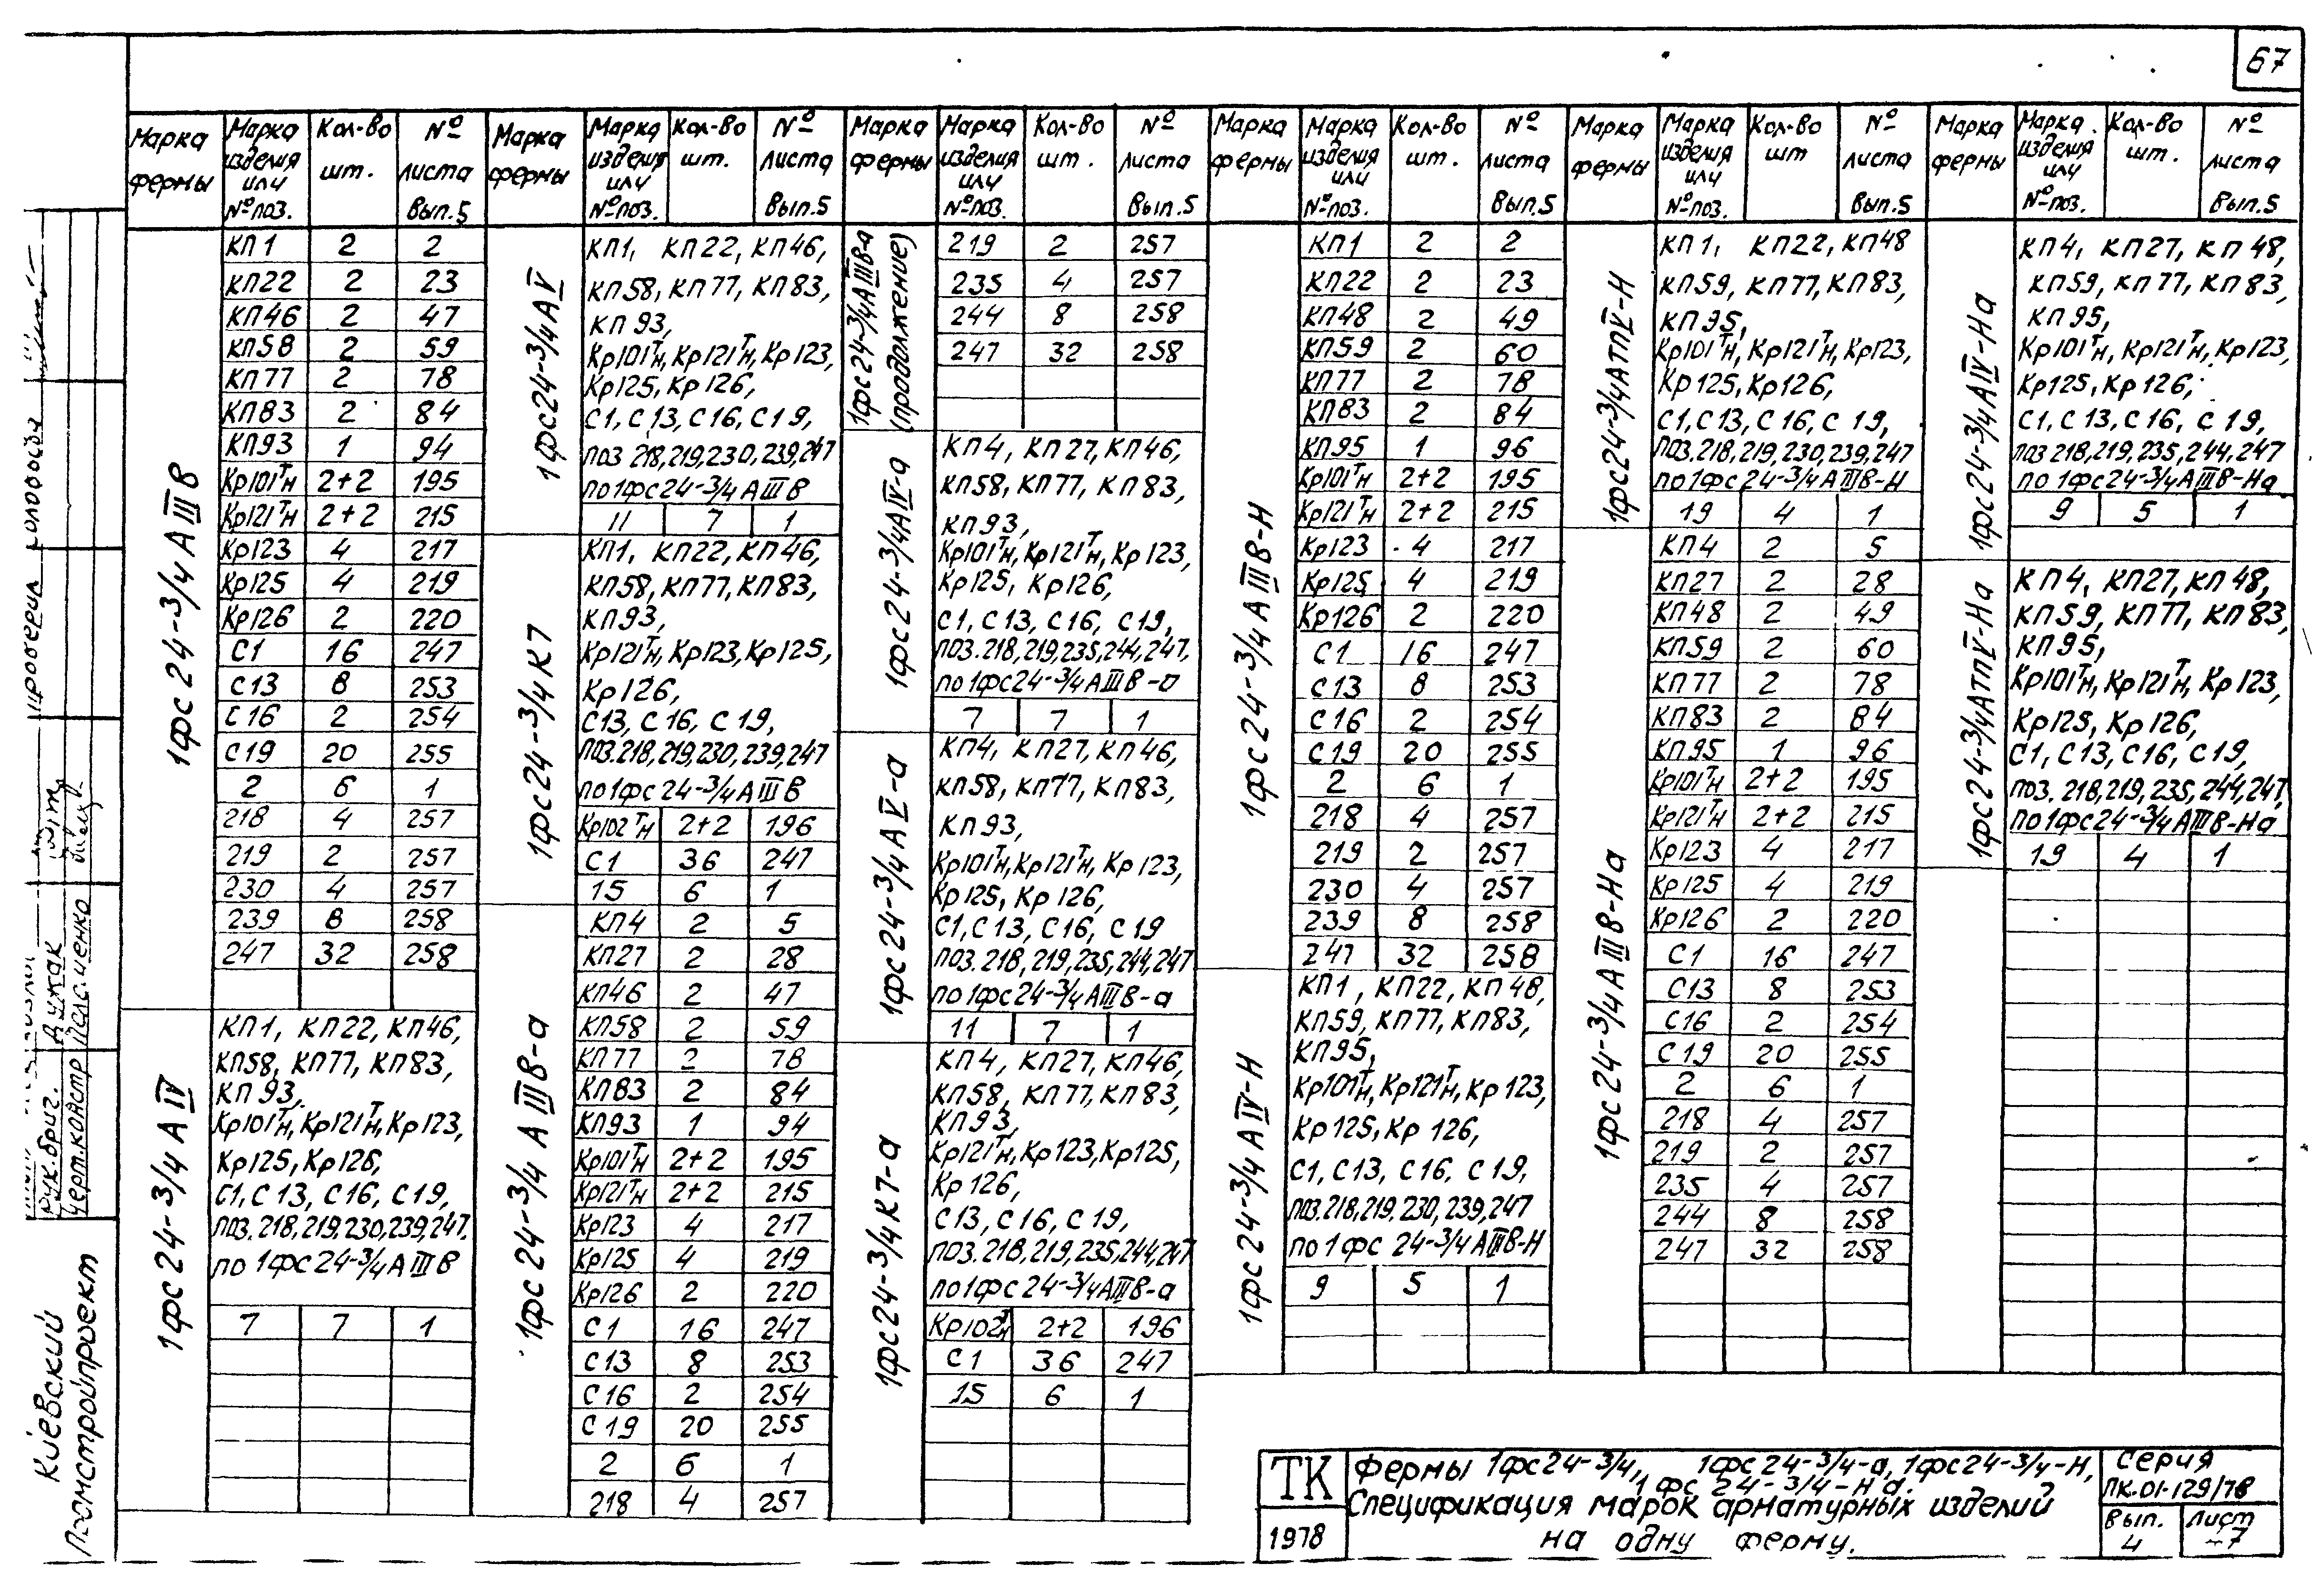 67
Марка фермы | Марка изделия или № поз. | Кол-во шт. | № листа Вып.5
1фс24-3/4АIIIВ
КП1 2 2
КП22 2 23
КП46 2 47
КП58 2 59
КП77 2 78
КП83 2 84
КП93 1 94
Кр101ТН 2+2 195
Кр121ТН 2+2 215
Кр123 4 217
Кр125 4 219
Кр126 2 220
С1 16 247
С13 8 253
С16 2 254
С19 20 255
2 6 1
218 4 257
219 2 257
230 4 257
239 8 258
247 32 258
1фс24-3/4АIV
КП1, КП22, КП46,
КП58, КП77, КП83,
КП93,
Кр101ТН, Кр121ТН, Кр123,
Кр125, Кр126,
С1, С13, С16, С19,
поз. 218,219,230,239,247.
по 1фс24-3/4АIIIВ
7 7 1
Марка фермы | Марка изделия или № поз. | Кол-во шт. | № листа Вып.5
1фс24-3/4АV
КП1, КП22, КП46,
КП58, КП77, КП83,
КП93,
Кр101ТН, Кр121ТН, Кр123,
Кр125, Кр126,
С1, С13, С16, С19,
поз 218,219,230,239,247
по 1фс24-3/4АIIIВ
11 7 1
1фс24-3/4К7
КП1, КП22, КП46,
КП58, КП77, КП83,
КП93,
Кр121ТН, Кр123, Кр125,
Кр126,
С13, С16, С19,
поз.218,219,230,239,247
по 1фс24-3/4АIIIВ
Кр102ТН 2+2 196
С1 36 247
15 6 1
1фс24-3/4АIIIВ-а
КП4 2 5
КП27 2 28
КП46 2 47
КП58 2 59
КП77 2 78
КП83 2 84
КП93 1 94
Кр101ТН 2+2 195
Кр121ТН 2+2 215
Кр123 4 217
Кр125 4 219
Кр126 2 220
С1 16 247
С13 8 253
С16 2 254
С19 20 255
2 6 1
218 4 257
Марка фермы | Марка изделия или № поз. | Кол-во шт. | № листа Вып.5
1фс24-3/4АIIIВ-а (продолжение)
219 2 257
235 4 257
244 8 258
247 32 258
1фс24-3/4АIV-а
КП4, КП27, КП46,
КП58, КП77, КП83,
КП93,
Кр101ТН, Кр121ТН, Кр123,
Кр125, Кр126,
С1, С13, С16, С19,
поз.218,219,235,244,247,
по 1фс24-3/4АIIIВ-а
7 7 1
1фс24-3/4АV-а
КП4, КП27, КП46,
КП58, КП77, КП83,
КП93,
Кр101ТН, Кр121ТН, Кр123,
Кр125, Кр126,
С1, С13, С16, С19
поз.218,219,235,244,247
по 1фс24-3/4АIIIВ-а
11 7 1
1фс24-3/4К7-а
КП4, КП27, КП46,
КП58, КП77, КП83,
КП93,
Кр121ТН, Кр123, Кр125,
Кр126,
С13, С16, С19,
поз.218,219,235,244,247
по 1фс24-3/4АIIIВ-а
Кр102ТН 2+2 196
С1 36 247
15 6 1
Марка фермы | Марка изделия или № поз. | Кол-во шт. | № листа Вып.5
1фс24-3/4АIIIВ-Н
КП1 2 2
КП22 2 23
КП48 2 49
КП59 2 60
КП77 2 78
КП83 2 84
КП95 1 96
Кр101ТН 2+2 195
Кр121ТН 2+2 215
Кр123 4 217
Кр125 4 219
Кр126 2 220
С1 16 247
С13 8 253
С16 2 254
С19 20 255
2 6 1
218 4 257
219 2 257
230 4 257
239 8 258
247 32 258
1фс24-3/4АIV-Н
КП1, КП22, КП48,
КП59, КП77, КП83,
КП95,
Кр101ТН, Кр121ТН, Кр123,
Кр125, Кр126,
С1, С13, С16, С19,
поз.218,219,230,239,247
по 1фс 24-3/4АIIIВ-Н
9 5 1
Марка фермы | Марка изделия или № поз. | Кол-во шт | № листа Вып.5
1фс24-3/4АтпV-Н
КП1, КП22, КП48
КП59, КП77, КП83,
КП95,
Кр101ТН, Кр121ТН, Кр123,
Кр125, Кр126,
С1, С13, С16, С19,
поз.218,219,230,239,247
по 1фс24-3/4АIIIВ-Н
19 4 1
1фс24-3/4АIIIВ-На
КП4 2 5
КП27 2 28
КП48 2 49
КП59 2 60
КП77 2 78
КП83 2 84
КП95 1 96
Кр101ТН 2+2 195
Кр121ТН 2+2 215
Кр123 4 217
Кр125 4 219
Кр126 2 220
С1 16 247
С13 8 253
С16 2 254
С19 20 255
2 6 1
218 4 257
219 2 257
235 4 257
244 8 258
247 32 258
Марка фермы | Марка изделия или № поз. | Кол-во шт. | № листа Вып.5
1фс24-3/4АIV-На
КП4, КП27, КП48,
КП59, КП77, КП83,
КП95,
Кр101ТН, Кр121ТН, Кр123,
Кр125, Кр126,
С1, С13, С16, С19,
поз 218,219,235,244,247
по 1фс24-3/4АIIIВ-На
9 5 1
1фс24-3/4АтпV-На
КП4, КП27, КП48,
КП59, КП77, КП83,
КП95,
Кр101ТН, Кр121ТН, Кр123,
Кр125, Кр126,
С1, С13, С16, С19,
поз. 218,219,235,244,247,
по 1фс24-3/4АIIIВ-На
19 4 1
ТК
1978
Фермы 1фс24-3/4, 1фс24-3/4-а, 1фс24-3/4-Н,
1фс 24-3/4-На.
Спецификация марок арматурных изделий
на одну ферму.
Серия
ПК-01-129/78
Вып. 4
Лист
Киевский
Проверил
Рук.бриг.
Черт.констр